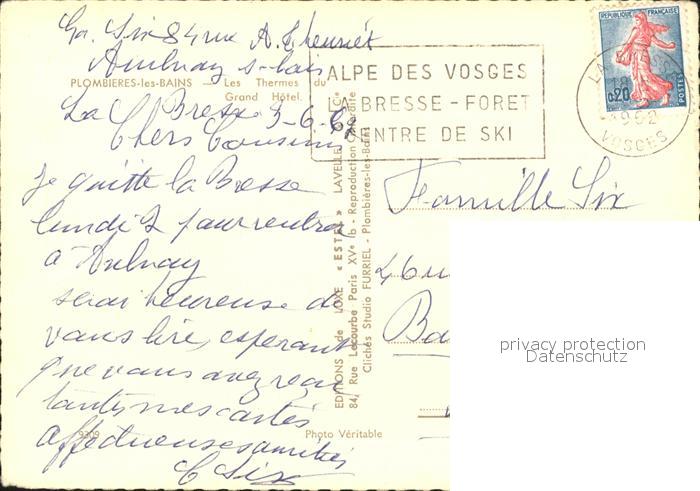 Six 84 rue A. Theuriet
Aulnay s-bois
PLOMBIERES-les-BAINS — Les Thermes du
Grand Hôtel.
La Bresse 3-6-62
Chers Cousins
Je quitte la Bresse
lundi 2 pour rentrer
à Aulnay
serai heureuse de
vous lire, esperant
que vous avez reçu
toutes mes cartes
affectueuses amitiés
C Six
9309
Photo Véritable
EDITIONS de LUXE « ESTEL » LAVELLE
84, Rue Lecourbe Paris XVe - Reproduction Interdite
Clichés Studio FURRIEL - Plombières-les-Bains
ALPE DES VOSGES
LA BRESSE - FORET
CENTRE DE SKI
RÉPUBLIQUE FRANÇAISE
0,20
POSTES
LA BRESSE
1962
VOSGES
Famille Six
46
Ba
privacy protection
Datenschutz